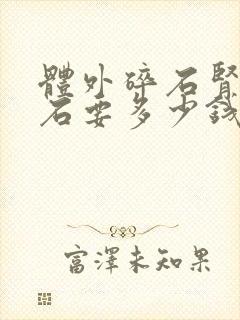 體外碎石腎
石要多少錢
富澤未知果